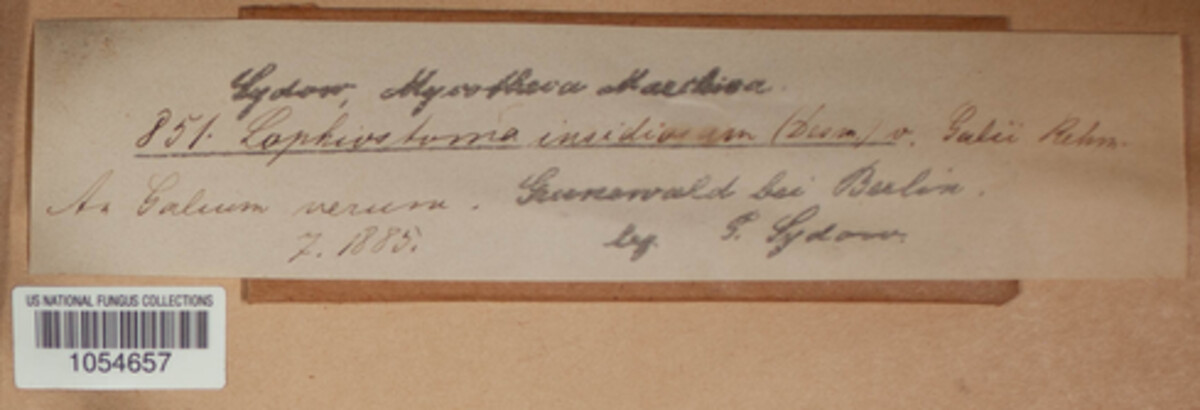 Sydow, Mycotheca Marchica.
851. Lophiostoma insidiosum (Desm.) v. Galii Rehm.
An Galium verum. Grunewald bei Berlin.
7. 1885. leg. P. Sydow.
US NATIONAL FUNGUS COLLECTIONS
1054657